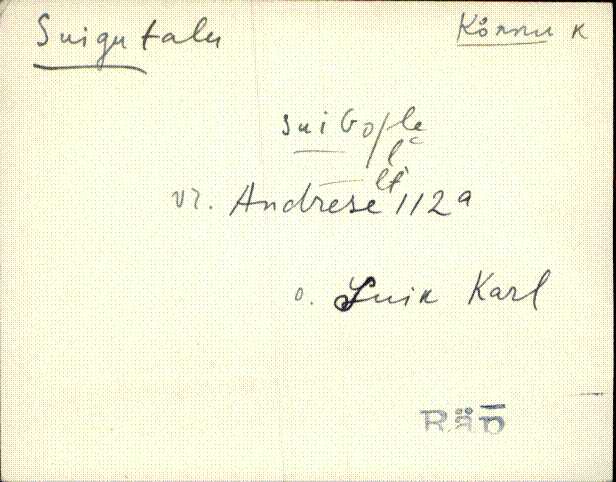 Suigu talu Kõnnu K
suiGo/le
l
lt
vr. Andrese 112a
o. Luik Karl
Räp